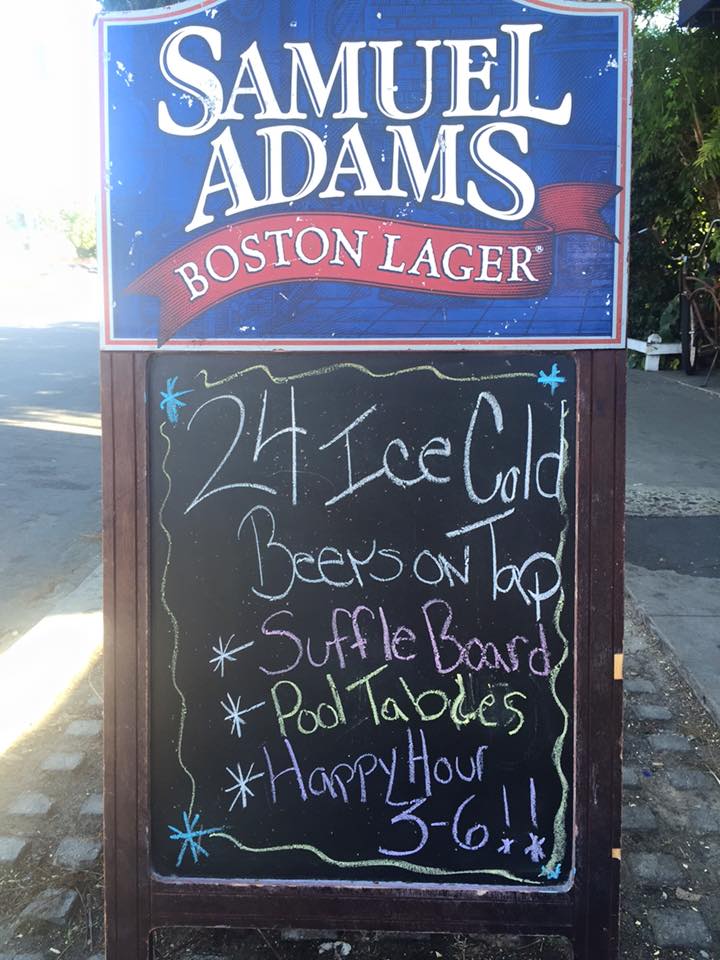 SAMUEL
ADAMS
BOSTON LAGER®
24 Ice Cold
Beers on Tap
* Suffle Board
* Pool Tables
* Happy Hour
3-6!!